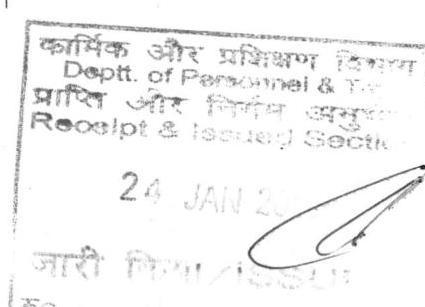 कार्मिक और प्रशिक्षण विभाग
Deptt. of Personnel &
प्राप्ति और निर्गम
Receipt & Issued Section
24 JAN
जारी किया